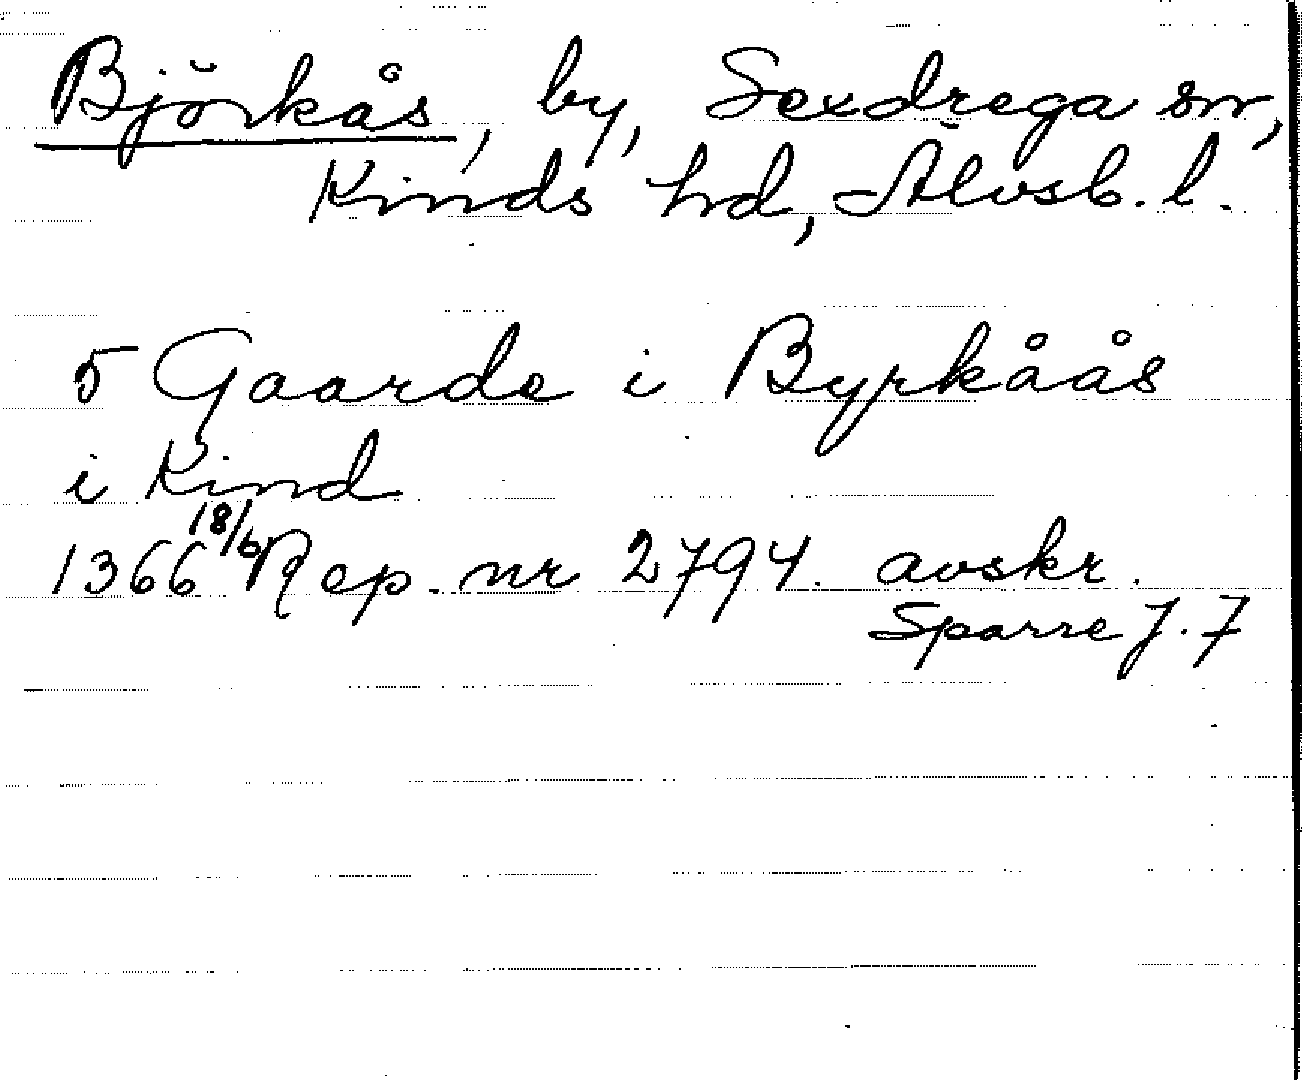 Björkås, by, Sexdrega sn,
Kinds hd, Älvsb. l.
5 Gaarde i Byrkåås
i Kind
1366 18/6 Rep. nr 2794. avskr.
Sparre J. 7